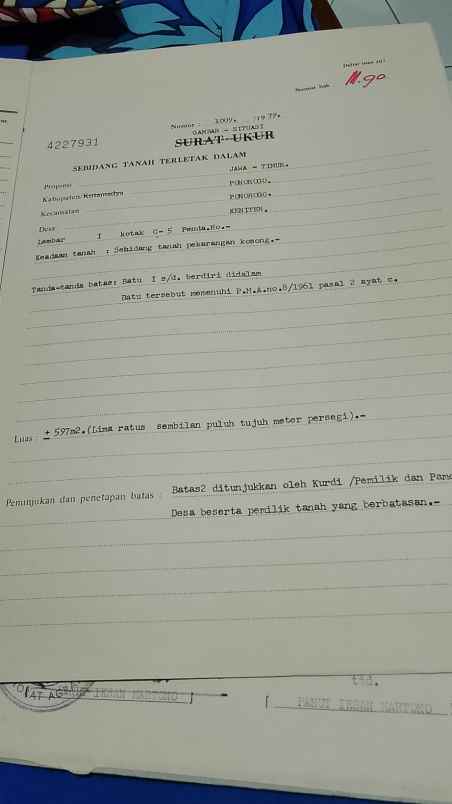 Daftar isian 207
Nomor hak
M.90
Nomor : 1009. 1977.
GAMBAR - SITUASI
4227931
SURAT UKUR
SEBIDANG TANAH TERLETAK DALAM
Propinsi JAWA - TIMUR.
Kabupaten/Kotamadya PONOROGO.
Kecamatan PONOROGO.
Desa KENITEN.
Lembar I kotak C- 5 Pemda.No.-
Keadaan tanah : Sebidang tanah pekarangan kosong.-
Tanda-tanda batas: Batu I s/d. berdiri didalam
Batu tersebut memenuhi P.M.A.no.8/1961 pasal 2 ayat c.
Luas : ± 597m2.(Lima ratus sembilan puluh tujuh meter persegi).-
Penunjukan dan penetapan batas : Batas2 ditunjukkan oleh Kurdi /Pemilik dan Pamo
Desa beserta pemilik tanah yang berbatasan.-
ttd.
AT AG IKSAN MARTONO
PANUT IKSAN MARTONO